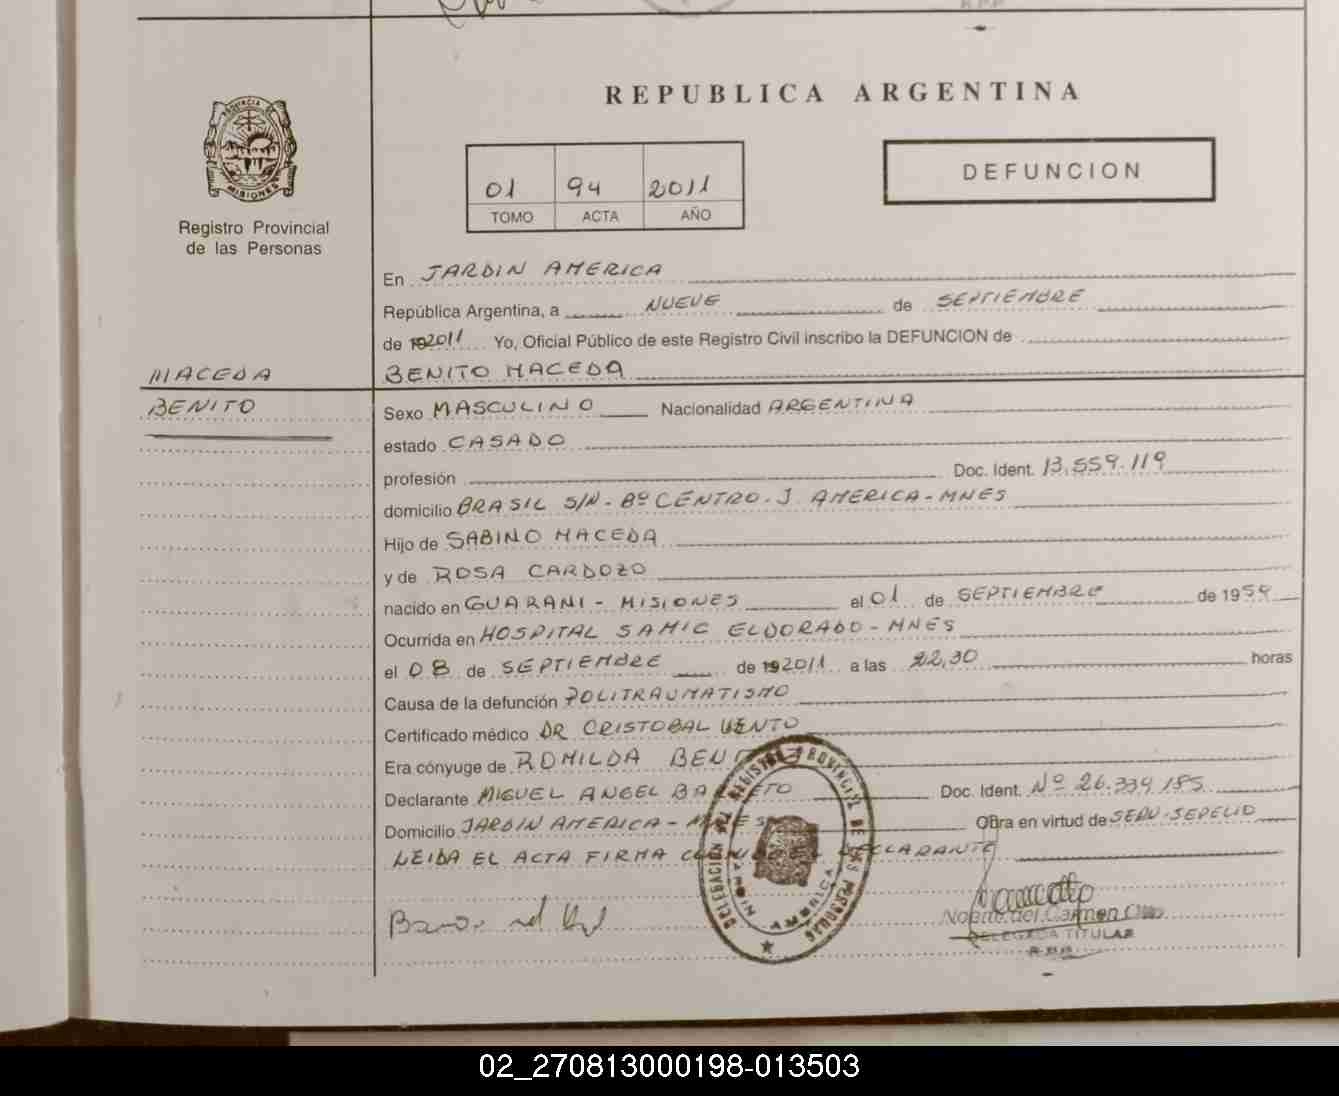 REPUBLICA ARGENTINA
PROVINCIA DE
MISIONES
Registro Provincial
de las Personas
01 94 2011
TOMO ACTA AÑO
DEFUNCION
En JARDIN AMERICA
República Argentina, a NUEVE de SEPTIEMBRE
de 192011 Yo, Oficial Público de este Registro Civil inscribo la DEFUNCION de
MACEDA
BENITO MACEDA
BENITO
Sexo MASCULINO Nacionalidad ARGENTINA
estado CASADO
profesión Doc. Ident. 13.559.119
domicilio BRASIL S/N - Bº CENTRO - J. AMERICA - MNES
Hijo de SABINO MACEDA
y de ROSA CARDOZO
nacido en GUARANI - MISIONES el 01 de SEPTIEMBRE de 1959
Ocurrida en HOSPITAL SAMIC ELDORADO - MNES
el 08 de SEPTIEMBRE de 192011 a las 22,30 horas
Causa de la defunción POLITRAUMATISMO
Certificado médico DR CRISTOBAL VENTO
Era cónyuge de ROMILDA
Declarante MIGUEL ANGEL
Doc. Ident. Nº 26.334.185
Domicilio JARDIN AMERICA - MNES Obra en virtud de SERV. SEPELIO
LEIDA EL ACTA FIRMA DECLARANTE
DELEGACION DEL REGISTRO PROVINCIAL DE LAS PERSONAS
JARDIN AMERICA
del Carmen
DELEGADA TITULAR
02_270813000198-013503